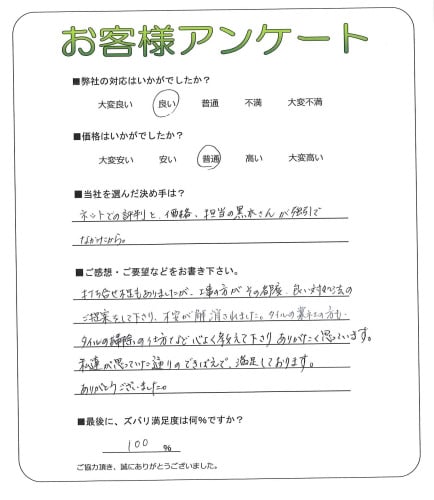 お客様アンケート
■弊社の対応はいかがでしたか？
大変良い 良い 普通 不満 大変不満
■価格はいかがでしたか？
大変安い 安い 普通 高い 大変高い
■当社を選んだ決め手は？
ネットでの評判と、価格、担当の黒木さんが強引で
なかったから。
■ご感想・ご要望などをお書き下さい。
打ち合せ不足もありましたが、工事の方がその都度、良い対処法の
ご提案をして下さり、不安が解消されました。タイルの業社の方も、
タイルの掃除の仕方など心よく教えて下さりありがたく思っています。
私達が思っていた通りのできばえで、満足しております。
ありがとうございました。
■最後に、ズバリ満足度は何%ですか？
100 %
ご協力頂き、誠にありがとうございました。